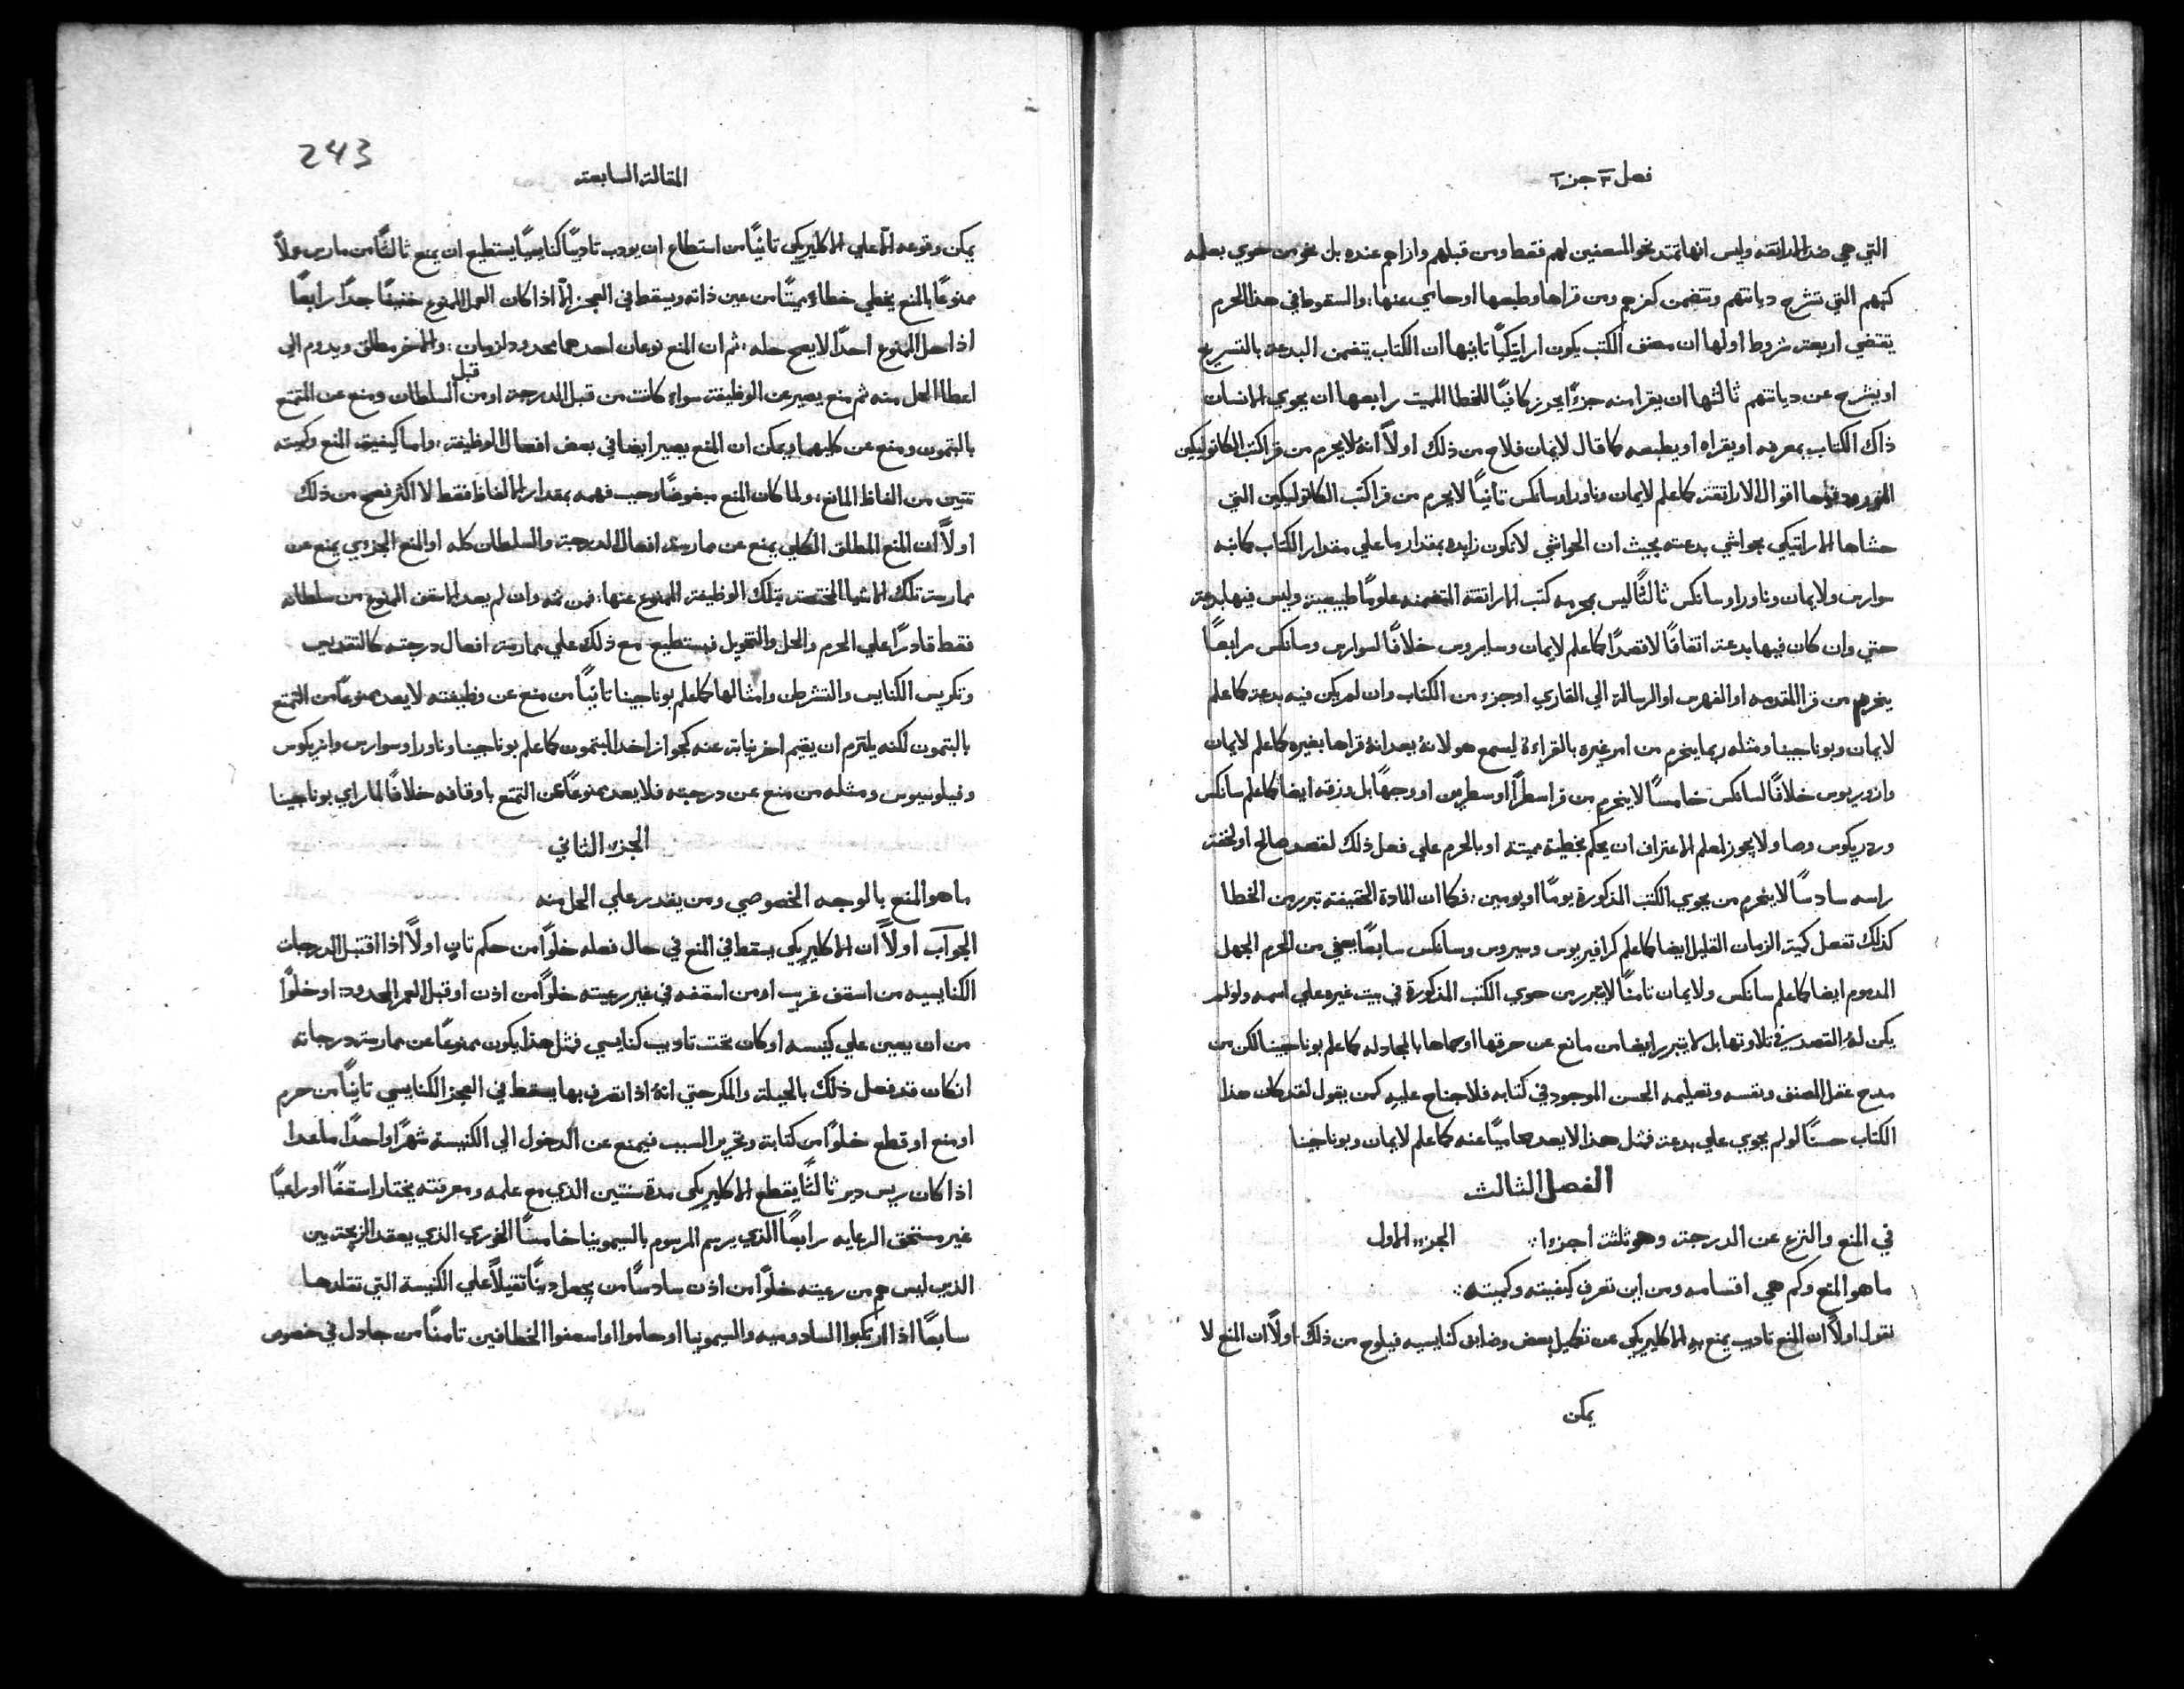 فصل ٣ جز ٢
التي هي ضد الاراتقه وليس انها تمتد نحو المسعفين لهم فقط ومن قبلهم وازاهم عنده بل نحو من حوي بعلمه
كتبهم التي تشرح ديانتهم وتتضمن كفرهم ومن قراها وطبعها او حامي عنها: والسقوط في هذا الحرم
يقتضي اربعة شروط اولها ان مصنف الكتب يكون اراتيكيًا ثانيها ان الكتاب يتضمن البدعة بالتسريح
او يشرح عن ديانتهم ثالثها ان يقرا منه جزءًا يحرز كافيًا للخطا المميت رابعها ان يحوي الانسان
ذاك الكتاب بمعرفه او يقراه او يطبعه كما قال لايمان فلاح من ذلك اولاً انهُ لا يحرم من قرا كتب الكاتوليكيين
المورود فيها اقوال الاراتقة كما علم لايمان وناورا وسانكس ثانيًا لا يحرم من قرا كتب الكاتوليكيين التي
حشاها الاراتيكي بحواشي بدعته بحيث ان الحواشي لا تكون زايده بمقدار ما علي مقدار الكتاب كما نبه
سوارس ولايمان وناورا وسانكس ثالثًا ليس بحرمه كتب الاراتقة المتضمنه علومًا طبيعية وليس فيها بدعة
حتي وان كان فيها بدعة اتفاقًا لا قصدًا كما علم لايمان وسايروس خلافًا لسوارس وسانكس رابعًا
ينحرم من قرا المقدمه او الفهرس او الرسالة الي القاري او جزء من الكتاب وان لم يكن فيه بدعة كما علم
لايمان وبوناجينا ومثله ربما ينحرم من امر غيره بالقراءة ليسمع هو لانهُ يعد انهُ قراها بغيره كما علم لايمان
وازوريوس خلافًا لسانكس خامسًا لا ينحرم من قرا سطرًا او سطرين او وجهًا بل ورقه ايضا كما علم سانكس
وردريكوس وصا ولا يجوز لمعلم الاعتراف ان يحكم بخطية مميتة او بالحرم علي فعل ذلك لقصد صالح او لخفة
راسه سادسًا لا ينحرم من يحوي الكتب المذكورة يومًا او يومين: فكما ان المادة الخفيفة تبرر من الخطا
كذلك تفعل كمية الزمان القليل ايضا كما علم كرافيريوس وسيروس وسانكس سابعًا يعفي من الحرم الجهل
المدموم ايضا كما علم سانكس ولايمان ثامنًا لا يتبرر من حوي الكتب المذكورة في بيت غيره علي اسمه ولو لم
يكن لهُ القصد في تلاوتها بل لا يتبرر ايضا من مانع عن حرقها او حماها بالمجادله كما علم بوناجينا لكن من
مدح عقل المصنف ونفسه وتعليمه الحسن الموجود في كتابه فلا جناح عليهِ كمن يقول لقد كان هذا
الكتاب حسنًا لو لم يحوي علي بدعة فمثل هذا لا يعد حاميًا عنه كما علم لايمان وبوناجينا
الفصل الثالث
في المنع والنزع عن الدرجة وهو ثلثة اجزا: الجزء الاول
ما هو المنع وكم هي اقسامه ومن اين تعرف كيفيته وكميته:
نقول اولاً ان المنع تاديب يمنع بهِ الاكليريكي عن تكميل بعض وضايف كنايسيه فيلوح من ذلك اولاً ان المنع لا
يمكن
243
المقالة السابعة
يمكن وقوعه الّا علي الاكليريكي ثانيًا من استطاع ان يودب تاديبًا كنايسيًا يستطيع ان يمنع ثالثًا من مارس عملاً
ممنوعًا بالمنع يخطي خطاءً مميتًا من عين ذاته ويسقط في العجز الّا اذا كان العمل الممنوع خفيفًا جدًا رابعًا
اذا حل الممنوع احدًا لا يصح حله: ثم ان المنع نوعان احدهما محدود لزمان: والاخر مطلق ويدوم الي
اعطا الحل منه ثم منع يصير عن الوظيفة سواء كانت من قبل الدرجة او من قبل السلطان ومنع عن التمتع
بالبتمون ومنع عن كليهما ويمكن ان المنع يصير ايضا في بعض افعال الوظيفة: واما كيفية المنع وكميته
تتبين من الفاظ المانع: ولما كان المنع مبغوضًا وجب فهمه بمقدار الالفاظ فقط لا اكثر نصح من ذلك
اولاً ان المنع المطلق الكلي يمنع عن ممارسة افعال الدرجة والسلطان كله او المنع الجزءي يمنع عن
ممارسة تلك الاشيا المختصة بتلك الوظيفة الممنوع عنها: فمن ثمه وان لم يعد الاسقف الممنوع من سلطانه
فقط قادرًا علي الحرم والحل والتخويل فيستطيع مع ذلك علي ممارسة افعال درجته كالتقديس
وتكريس الكنايس والتشرطن وامثالها كما علم بوناجينا ثانيًا من منع عن وظيفته لا يعد ممنوعًا من التمتع
بالبتمون لكنه يلتزم ان يقيم اخر نيابة عنه كجواز اخد البتمون كما علم بوناجينا وناورا وسوارس وانريكوس
وفيلوسيوس ومثله من منع عن درجته فلا يعد ممنوعًا عن التمتع باوقافه خلافًا لما راي بوناجينا
الجزء الثاني
ما هو المنع بالوجه الخصوصي ومن يقدر علي الحل منه
الجواب اولاً ان الاكليريكي يسقط في المنع في حال فعله خلوًا من حكم ثانٍ اولاً اذا اقتبل الدرجات
الكنايسيه من اسقف غريب او من اسقفه في غير رعيته خلوًا من اذن او قبل العمر المحدود: او خلوًا
من ان يعين علي كنيسه او كان تحت تاديب كنايسي فمثل هذا يكون ممنوعًا عن ممارسة درجاته
انكان قد فعل ذلك بالحيلة والمكر حتي انهُ اذا تصرف بها يسقط في العجز الكنايسي ثانيًا من حرم
او منع او قطع خلوًا من كتابة وتحرير السبب فيمنع عن الدخول الي الكنيسة شهرًا واحدًا ما عدا
اذا كان ريس دير ثالثًا يقطع الاكليريكي مدة سنتين الذي مع علمه ومعرفته يختار اسقفًا او راعيًا
غير مستحق الرعايه رابعًا الذي يرسم المرسوم بالسيمونيا خامسًا الخوري الذي يعقد الزيجة بين
الذين ليس هم من رعيته خلوًا من اذن سادسًا من يجعل دينًا ثقيلاً علي الكنيسة التي تقلدها
سابعًا اذا ارتكبوا السادوميه والسيمونيا او حاموا او اسعفوا الخطافين ثامنًا من جادل في خصوص